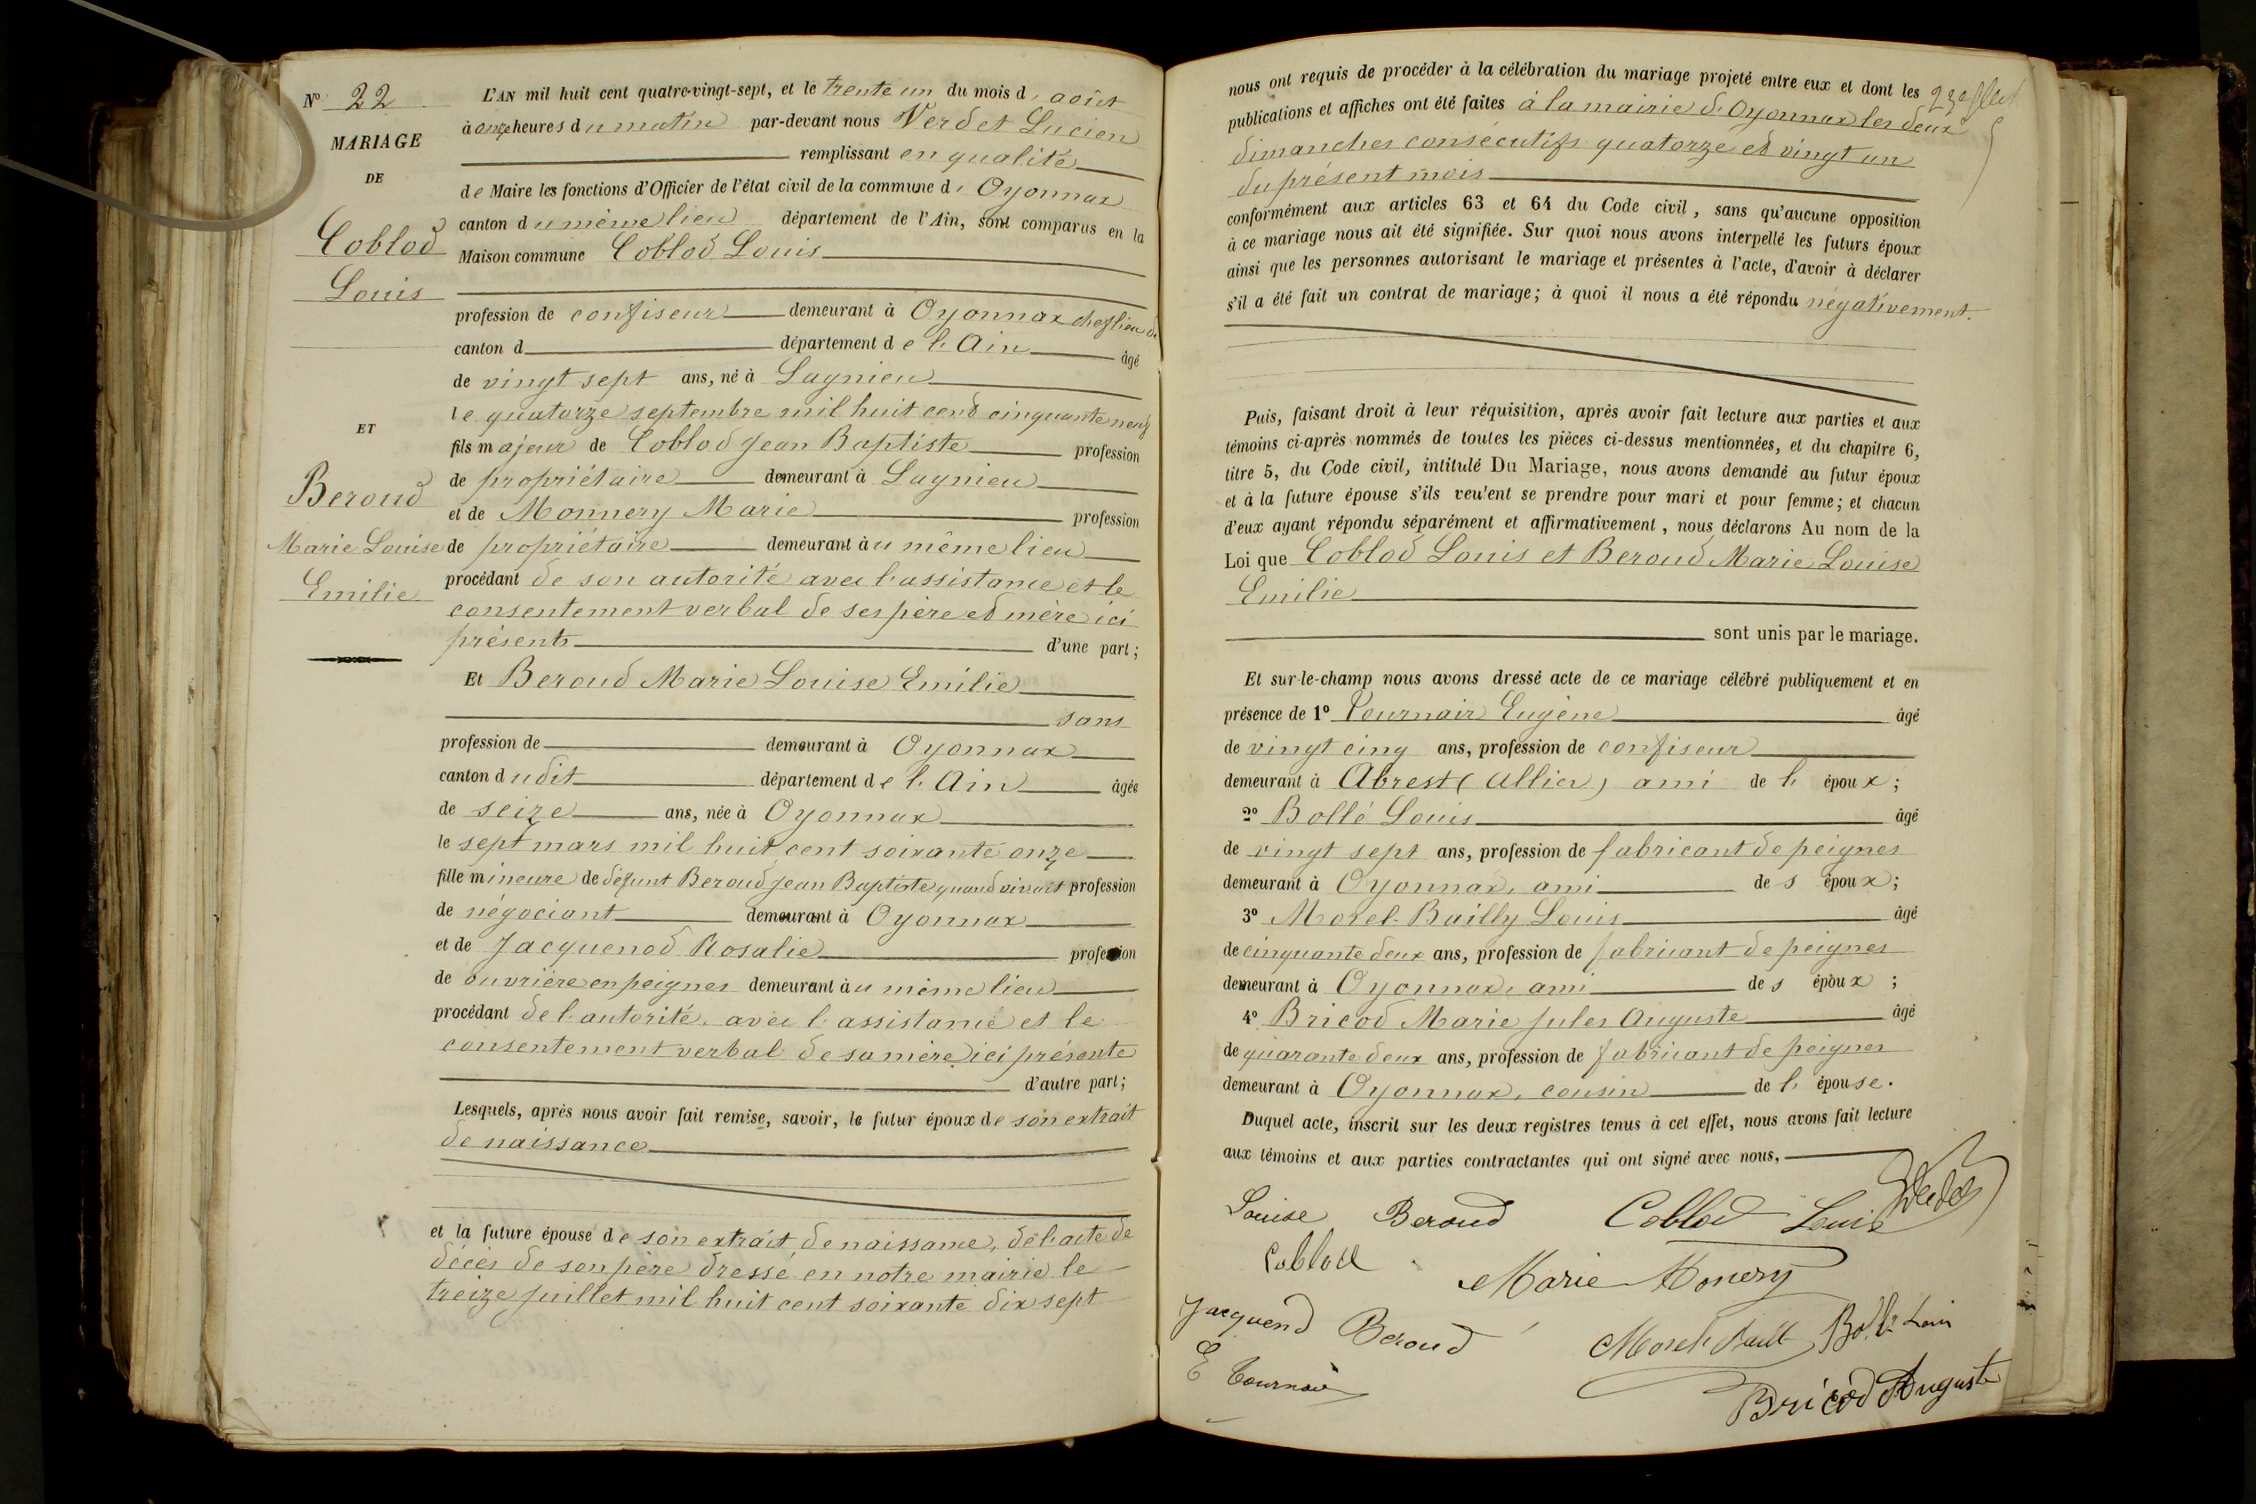 N° 22
MARIAGE
DE
Coblod
Louis
ET
Beroud
Marie Louise
Emilie
L'AN mil huit cent quatre-vingt-sept, et le trente un du mois d'août
à onze heures du matin par-devant nous Verdet Lucien
remplissant en qualité
de Maire les fonctions d'Officier de l'état civil de la commune d'Oyonnax
canton du même lieu département de l'Ain, sont comparus en la
Maison commune Coblod Louis
profession de confiseur demeurant à Oyonnax chef lieu de
canton d département de l'Ain âgé
de vingt sept ans, né à Lagnieu
le quatorze septembre mil huit cent cinquante neuf
fils majeur de Coblod Jean Baptiste profession
de propriétaire demeurant à Lagnieu
et de Monnery Marie profession
de propriétaire demeurant au même lieu
procédant de son autorité avec l'assistance et le
consentement verbal de ses père et mère ici
présents d'une part;
Et Beroud Marie Louise Emilie
sans
profession de demeurant à Oyonnax
canton dudit département de l'Ain âgée
de seize ans, née à Oyonnax
le sept mars mil huit cent soixante onze
fille mineure de défunt Beroud Jean Baptiste, quand vivait profession
de négociant demeurant à Oyonnax
et de Jacquenod Rosalie profession
de ouvrière en peignes demeurant au même lieu
procédant de l'autorité, avec l'assistance et le
consentement verbal de sa mère ici présente
d'autre part;
Lesquels, après nous avoir fait remise, savoir, le futur époux de son extrait
de naissance
et la future épouse de son extrait de naissance, de l'acte de
décès de son père dressé en notre mairie le
treize juillet mil huit cent soixante dix sept
nous ont requis de procéder à la célébration du mariage projeté entre eux et dont les
publications et affiches ont été faites à la mairie d'Oyonnax les deux
dimanches consécutifs quatorze et vingt un
du présent mois
conformément aux articles 63 et 64 du Code civil, sans qu'aucune opposition
à ce mariage nous ait été signifiée. Sur quoi nous avons interpellé les futurs époux
ainsi que les personnes autorisant le mariage et présentes à l'acte, d'avoir à déclarer
s'il a été fait un contrat de mariage; à quoi il nous a été répondu négativement.
Puis, faisant droit à leur réquisition, après avoir fait lecture aux parties et aux
témoins ci-après nommés de toutes les pièces ci-dessus mentionnées, et du chapitre 6,
titre 5, du Code civil, intitulé Du Mariage, nous avons demandé au futur époux
et à la future épouse s'ils veulent se prendre pour mari et pour femme; et chacun
d'eux ayant répondu séparément et affirmativement, nous déclarons Au nom de la
Loi que Coblod Louis et Beroud Marie Louise
Emilie
sont unis par le mariage.
Et sur-le-champ nous avons dressé acte de ce mariage célébré publiquement et en
présence de 1° Tournair Eugène âgé
de vingt cinq ans, profession de confiseur
demeurant à Abrest (Allier) ami de l'époux;
2° Bollé Louis âgé
de vingt sept ans, profession de fabricant de peignes
demeurant à Oyonnax, ami des époux;
3° Morel-Bailly Louis âgé
de cinquante deux ans, profession de fabricant de peignes
demeurant à Oyonnax, ami des époux;
4° Bricod Marie Jules Auguste âgé
de quarante deux ans, profession de fabricant de peignes
demeurant à Oyonnax, cousin de l'épouse.
Duquel acte, inscrit sur les deux registres tenus à cet effet, nous avons fait lecture
aux témoins et aux parties contractantes qui ont signé avec nous,
Louise Beroud Coblod Louis Verdet
Coblod Marie Monery
Jacquend Beroud Bollé Louis
E Tournair
Bricod Auguste